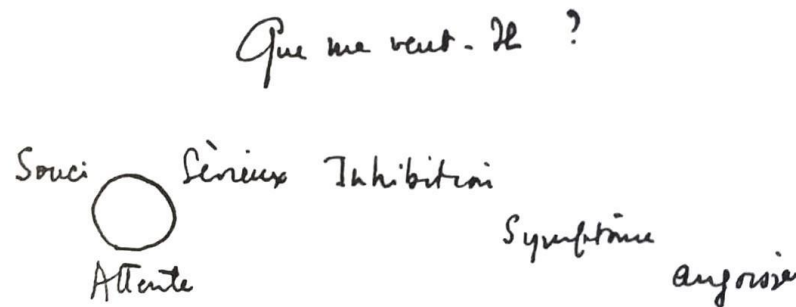 Que me veut-Il ?
Souci Sérieux Inhibition
Symptôme
Attente angoisse